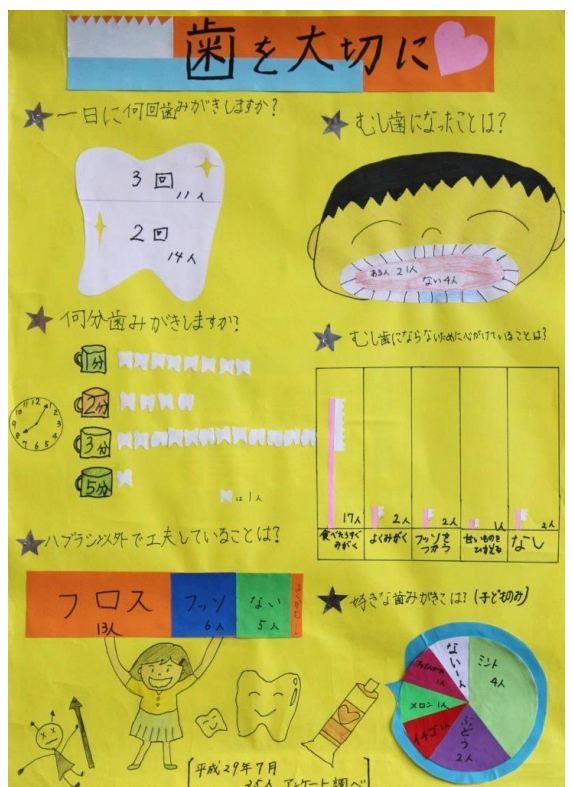 歯を大切に
一日に何回歯みがきしますか?
3回
11人
2回
14人
むし歯になったことは?
ある人 21人
ない 4人
何分歯みがきしますか?
1分
2分
3分
5分
は1人
むし歯にならないために心がけていることは?
17人
2人
2人
1人
2人
食べたらすぐみがく
よくみがく
フッソをつかう
なし
ハブラシ以外で工夫していることは?
フロス
13人
フッソ
6人
ない
5人
好きな歯みがきこは?(子どものみ)
ミント
4人
ぶどう
2人
イチゴ 1人
メロン 1人
1人
ない 一人
12
1
2
3
4
5
6
7
8
9
10
11
平成29年7月
25人 アンケート調べ